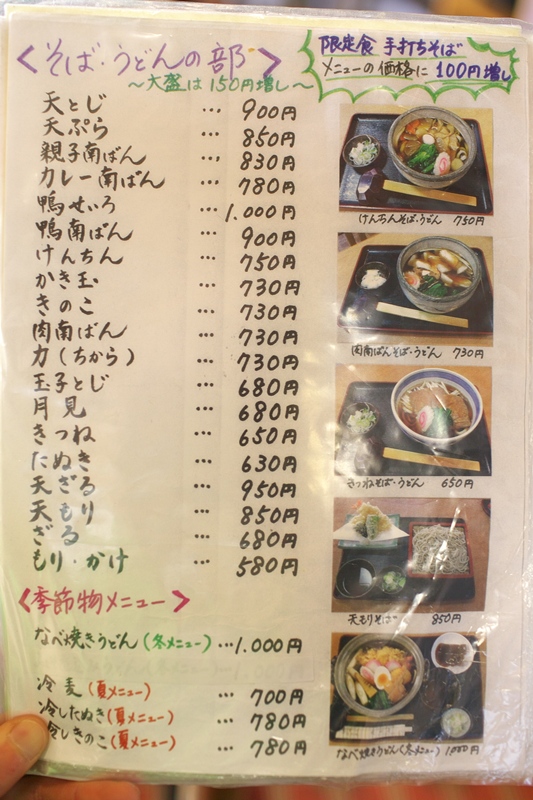 <そば・うどんの部>
～大盛は150円増し～
限定食 手打ちそば
メニューの価格に 100円増し
天とじ … 900円
天ぷら … 850円
親子南ばん … 830円
カレー南ばん … 780円
鴨せいろ … 1.000円
鴨南ばん … 900円
けんちん … 750円
かき玉 … 730円
きのこ … 730円
肉南ばん … 730円
力(ちから) … 730円
玉子とじ … 680円
月見 … 680円
きつね … 650円
たぬき … 630円
天ざる … 950円
天もり … 850円
ざる … 680円
もり・かけ … 580円
<季節物メニュー>
なべ焼きうどん(冬メニュー) … 1.000円
冷麦(夏メニュー) … 700円
冷したぬき(夏メニュー) … 780円
冷しきのこ(夏メニュー) … 780円
けんちんそば・うどん 750円
肉南ばんそば・うどん 730円
きつねそば・うどん 650円
天もりそば 850円
なべ焼きうどん(冬メニュー) 1,000円